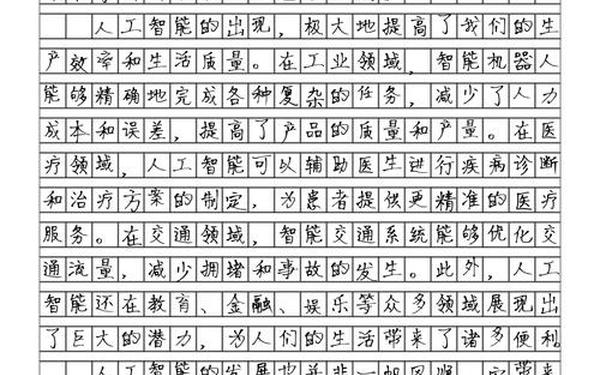 人工智能的出现，极大地提高了我们的生
产效率和生活质量。在工业领域，智能机器人
能够精确地完成各种复杂的任务，减少了人力
成本和误差，提高了产品的质量和产量。在医
疗领域，人工智能可以辅助医生进行疾病诊断
和治疗方案的制定，为患者提供更精准的医疗
服务。在交通领域，智能交通系统能够优化交
通流量，减少拥堵和事故的发生。此外，人工
智能还在教育、金融、娱乐等众多领域展现出
了巨大的潜力，为人们的生活带来了诸多便利。
人工智能的发展也并非一帆风顺，它带来